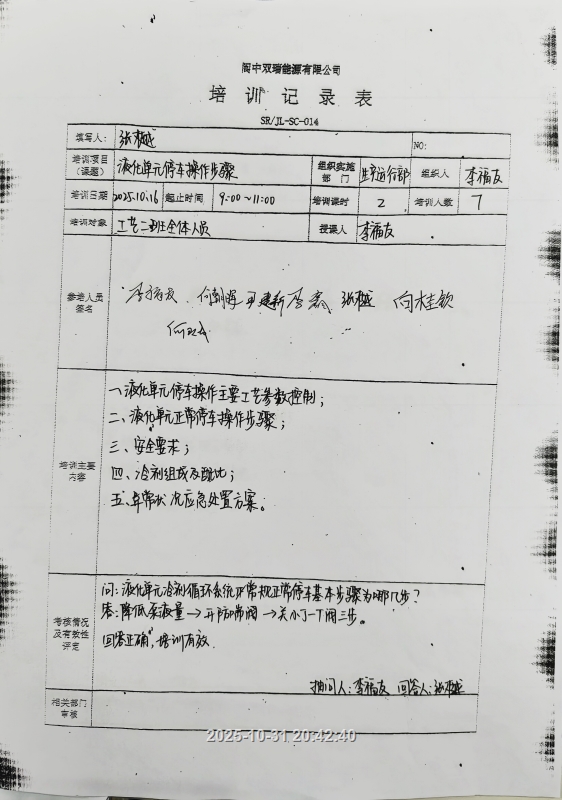 阆中双瑞能源有限公司
培训记录表
SR/JL-SC-014
填写人： 张樾 NO:
培训项目（课题） 液化单元停车操作步骤 组织实施部门 生产运行部 组织人 李福友
培训日期 2025.10.16 起止时间 9:00~11:00 培训课时 2 培训人数 7
培训对象 工艺二班全体人员 授课人 李福友
参培人员签名 李福友 张樾 向桂钦
培训主要内容
一、液化单元停车操作主要工艺参数控制；
二、液化单元正常停车操作步骤；
三、安全要求；
四、冷剂组成及配比；
五、异常状况应急处置方案。
考核情况及有效性评定
问：液化单元冷剂循环系统常规正常停车基本步骤为哪几步？
答：降低负荷量→开防喘阀→关小J-T阀三步。
回答正确，培训有效。
抽问人：李福友 回答人：张樾
相关部门审核
2025-10-31 20:42:40